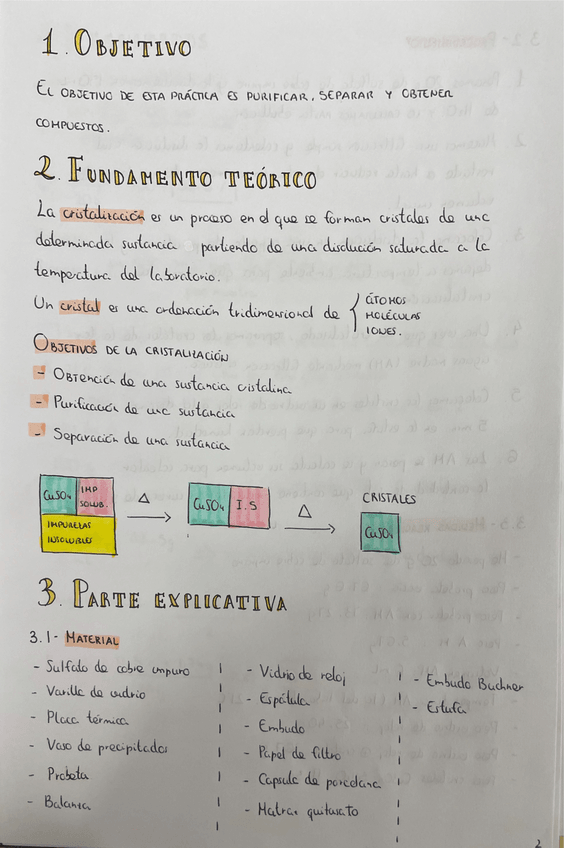 1. OBJETIVO
EL OBJETIVO DE ESTA PRÁCTICA ES PURIFICAR, SEPARAR Y OBTENER
COMPUESTOS.
2. FUNDAMENTO TEÓRICO
La cristalización es un proceso en el que se forman cristales de una
determinada sustancia partiendo de una disolución saturada a la
temperatura del laboratorio.
Un cristal es una ordenación tridimensional de { ÁTOMOS
MOLÉCULAS
IONES.
OBJETIVOS DE LA CRISTALIZACIÓN
- Obtención de una sustancia cristalina
- Purificación de una sustancia
- Separación de una sustancia
CuSO4 IMP SOLUB.
IMPUREZAS INSOLUBLES
Δ
CuSO4 I.S
Δ
CRISTALES
CuSO4
3. PARTE EXPLICATIVA
3.1- MATERIAL
- Sulfato de cobre impuro
- Varilla de vidrio
- Placa térmica
- Vaso de precipitados
- Probeta
- Balanza
- Vidrio de reloj
- Espátula
- Embudo
- Papel de filtro
- Capsula de porcelana
- Matraz quitasato
- Embudo Buchner
- Estufa
2